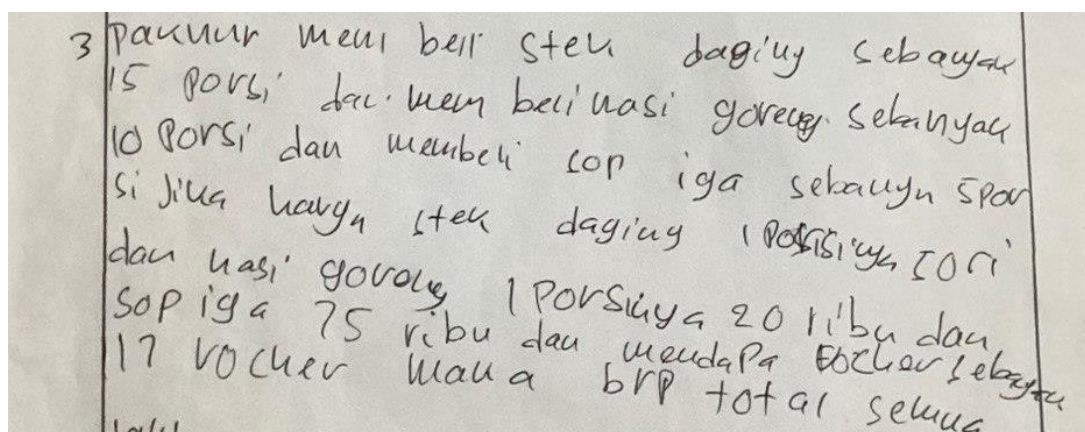 3 paknur mem beli stek daging sebanyak
15 porsi dan mem beli nasi goreng sebanyak
10 Porsi dan membeli sop iga sebanyn 5 por
si Jika hargn stek daging 1 Porsinya 50 ri
dan nasi goreng 1 Porsinya 20 ribu dan
sop iga 75 ribu dan mendapa vocher sebanyak
17 vocher maka brp total semua